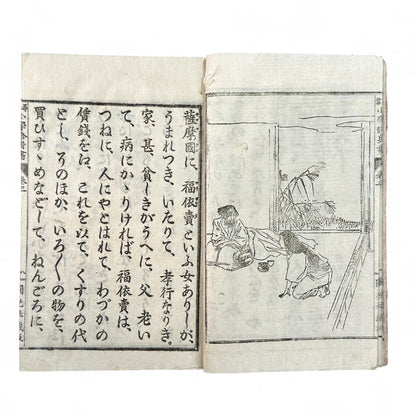 薩摩國に、福依賣といふ女ありしが、
うまれつき、いたりて、孝行なりき。
家、甚、貧しきがうへに、父老い
て、病にかゝりければ、福依賣は、
つねに、人にやとはれて、わづかの
賃錢をえ、これを以て、くすりの代
とし、そのほか、いろ〱の物を、
買ひすゝめなどして、ねんごろに、